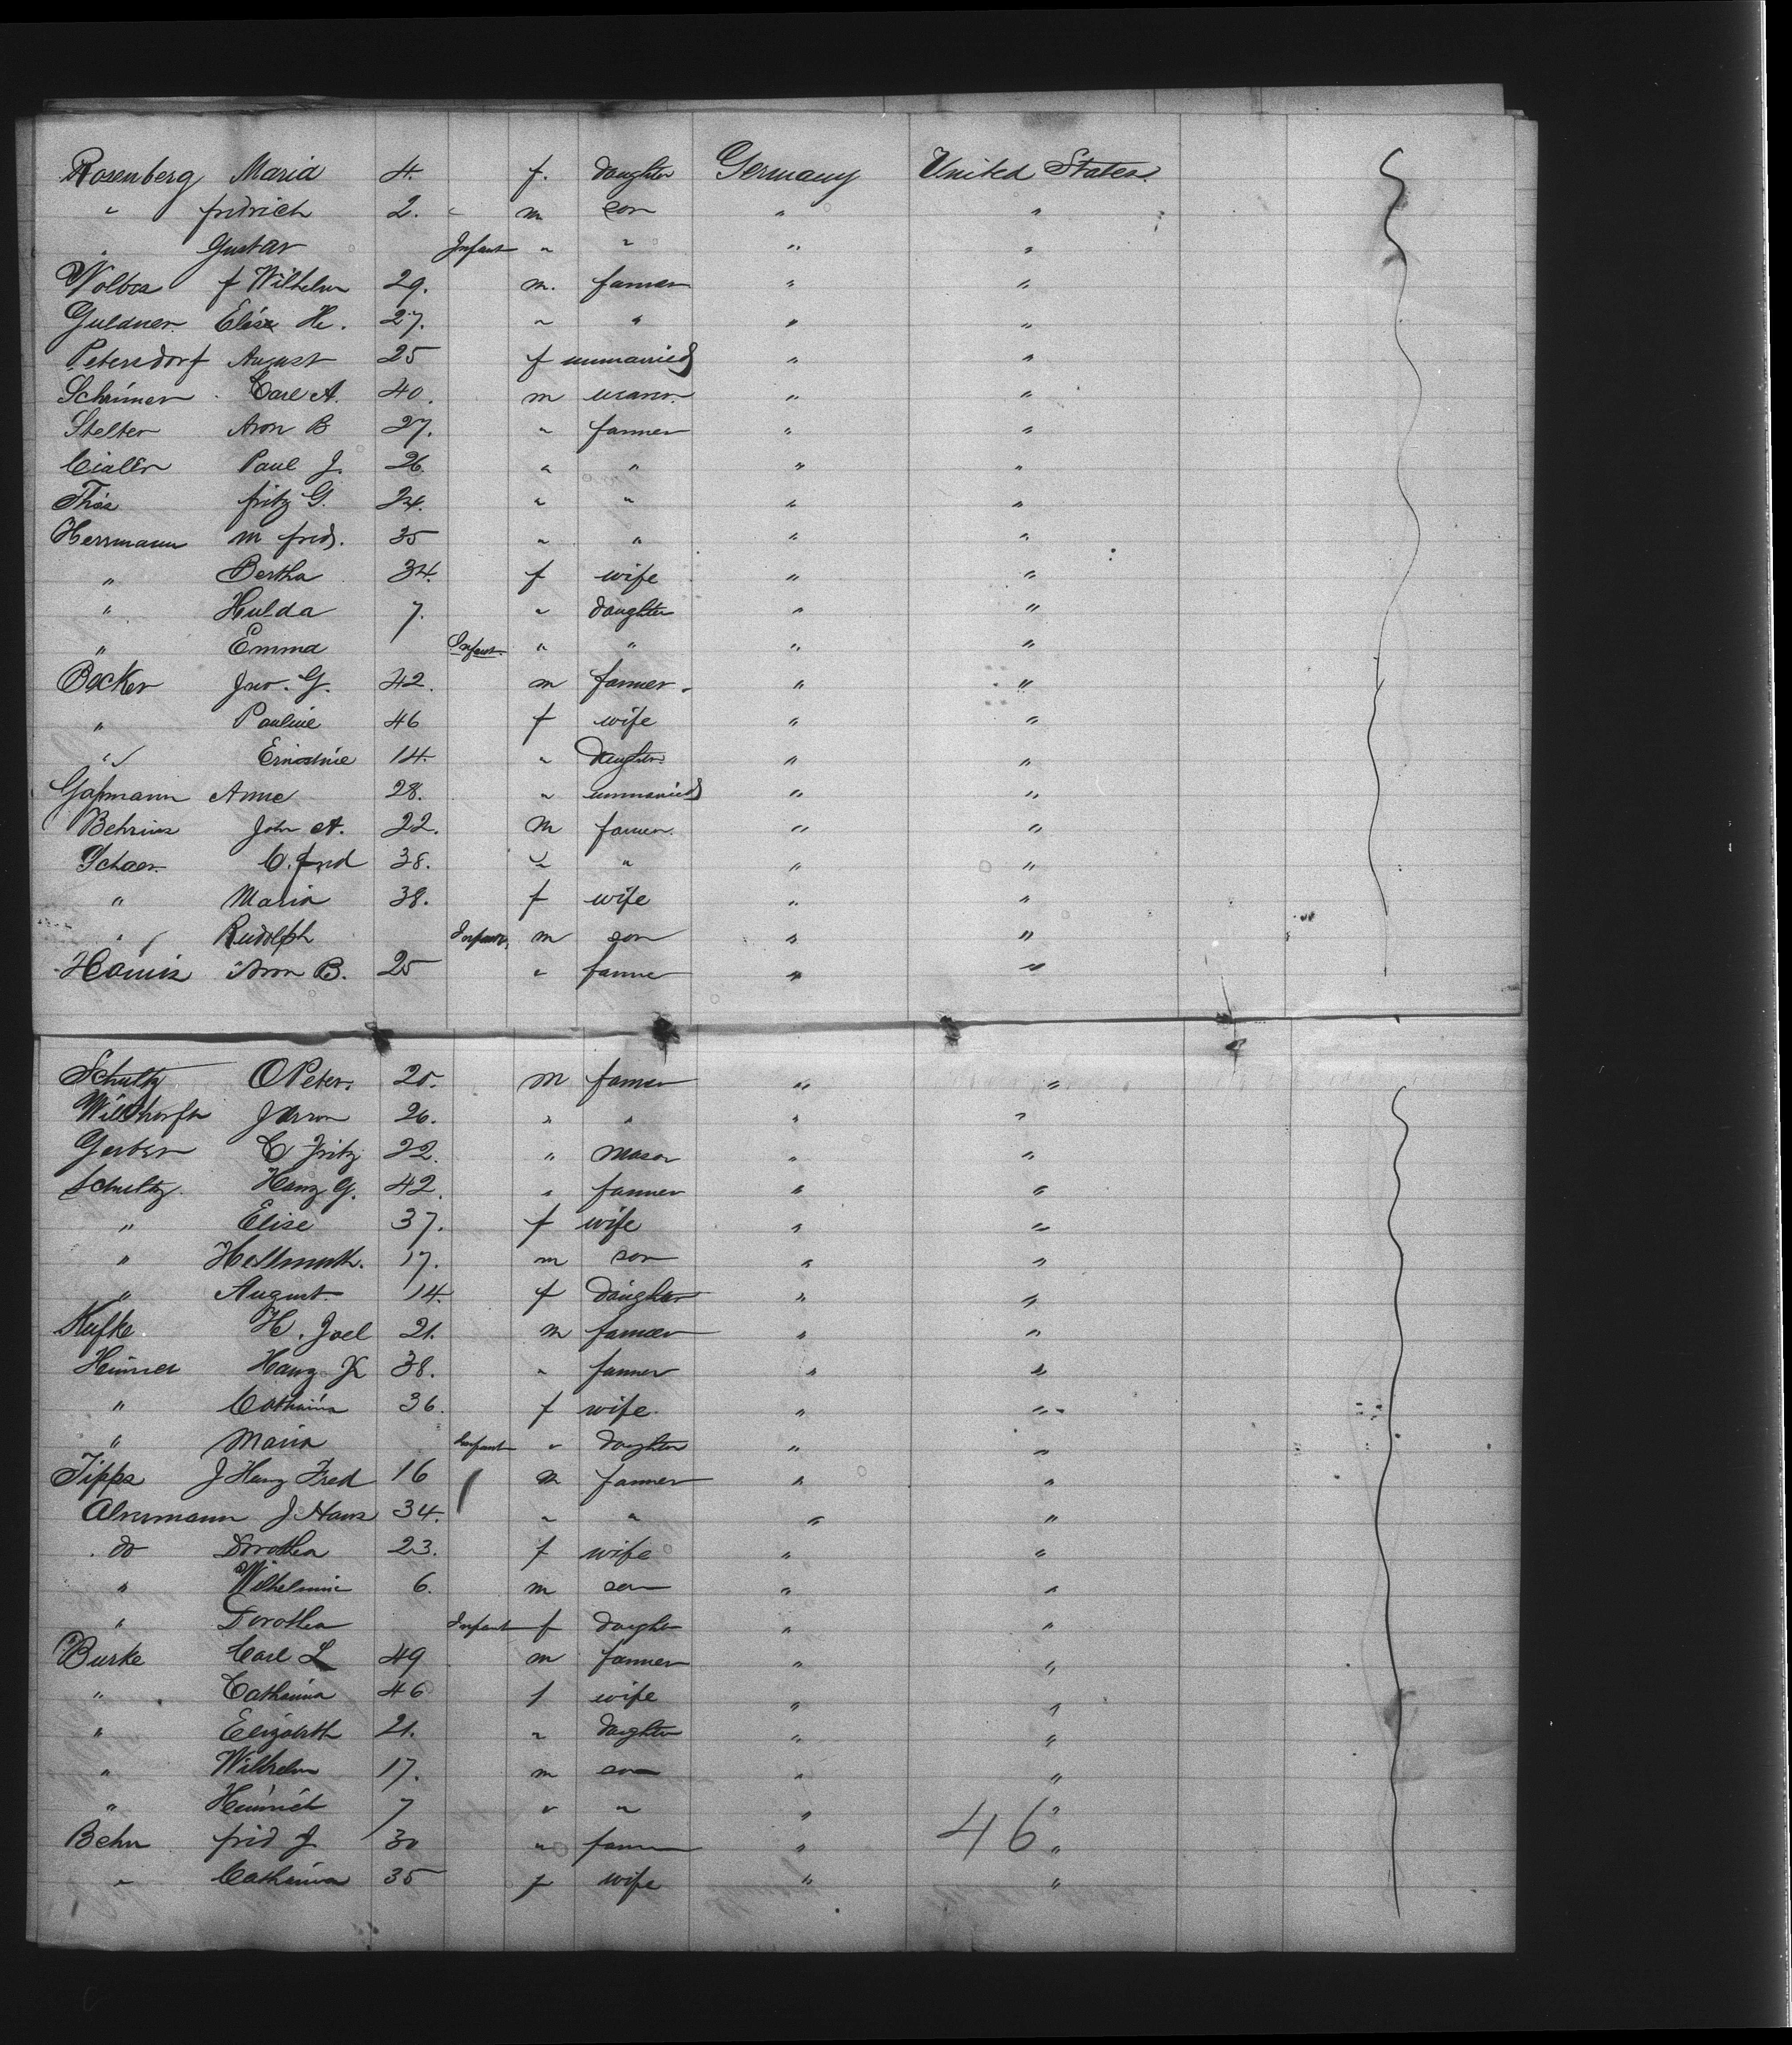 Rosenberg Maria 4. f. daughter Germany United States.
" fridrich 2. m son " "
" Gustav Infant " " " "
Wolbos f Wilhelm 29. m. farmer " "
Guldner Elise He. 27. " " " "
Petersdorf August 25 f unmarried " "
Schrimer Carl A. 40. m weaver. " "
Stelter Aron B 27. " farmer " "
Paul J. 26. " " " "
Thies fritz G. 24. " " " "
Herrmann m fred. 35 " " " "
" Bertha 34. f wife " "
" Hulda 7. " daughter " "
" Emma Infant " " " "
Bocker Jno. G. 42. m farmer. " "
" Pauline 46 f wife " "
" 14. " daughter " "
Gaßmann Anne 28. " unmarried " "
Behrins John A. 22. m farmer. " "
Schaer C. fred 38. " " " "
" Maria 38. f wife " "
" Rudolph Infant. m son " "
Aron B. 25 " farmer " "
Schultz O Peter. 25. m farmer " "
26. " " " "
Gerber C Fritz 22. " Mason " "
Schultz. Hanz G. 42. " farmer " "
" Elise 37. f wife " "
" Hellmuth. 17. m son " "
" August 14. f daughter " "
Kufke H. Joel 21. m farmer " "
Hanz K 38. " farmer " "
" Catharina 36. f wife. " "
" Maria Infant " daughter " "
Tipps J Hanz Fred 16 m farmer " "
Alvermann J. Hans 34. " " " "
do Dorothea 23. f wife " "
" Wilhelmine 6. m son " "
" Dorothea Infant f daughter " "
Burke Carl L 49 m farmer " "
" Catharina 46 f wife " "
" Elizabeth 21. " daughter " "
" Wilhelm 17. m son " "
" Heinrich 7 " " " "
Behn frid J 30 " farmer " 46 "
" Catharina 35 f wife " "